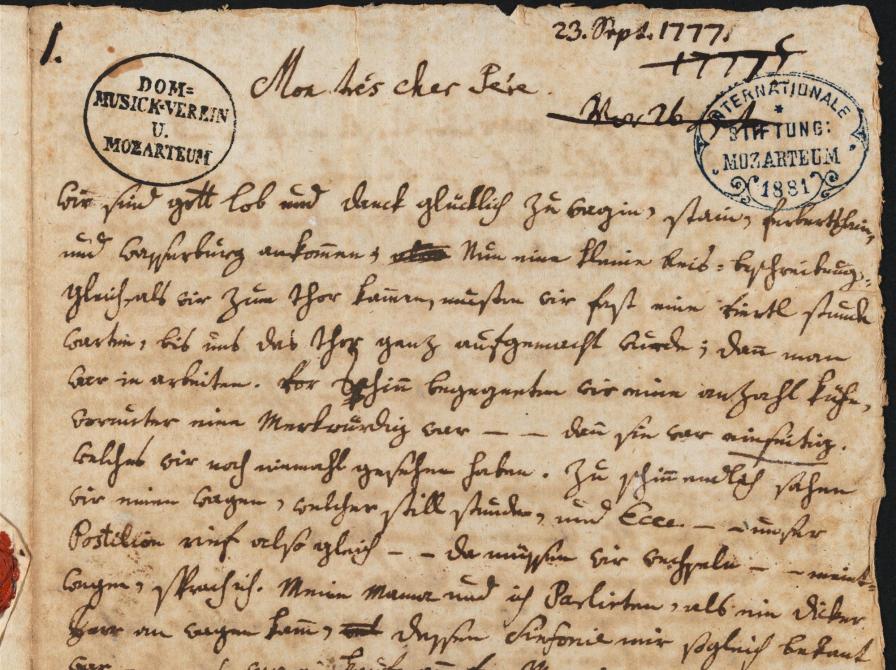 1.
23. Sept. 1777.
DOM=
MUSICK-VEREIN
U.
MOZARTEUM
Mon trés cher Pére.
INTERNATIONALE
STIFTUNG:
MOZARTEUM
1881
wir sind gott lob und danck glücklich zu wagin, stain, ferbertshain,
und wasserburg ankommen; Nun eine kleine Reis=beschreibung.
gleich als wir zum thor kammen, musten wir fast eine viertl stunde
warten, bis uns das thor ganz aufgemacht wurde; dan man
war in arbeiten. vor schinn begegneten wir eine anzahl kühe,
worunter eine Merkwürdig war – – dan sie war einseitig.
welches wir noch niemahl gesehen haben. Zu schinn endlich sahen
wir einen wagen, welcher still stunde, und Ecce – – unser
Postilion rief also gleich – – da müssen wir wechseln – – meint=
wegen, sprach ich. Meine Mama und ich Parlirten, als ein dicker
Herr an wagen kamm, dessen Sinfonie mir sogleich bekant
war